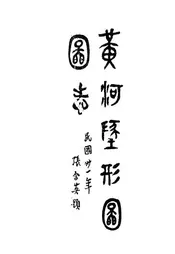 黃河墬形圖
圖志
民國卅一年
張含英題